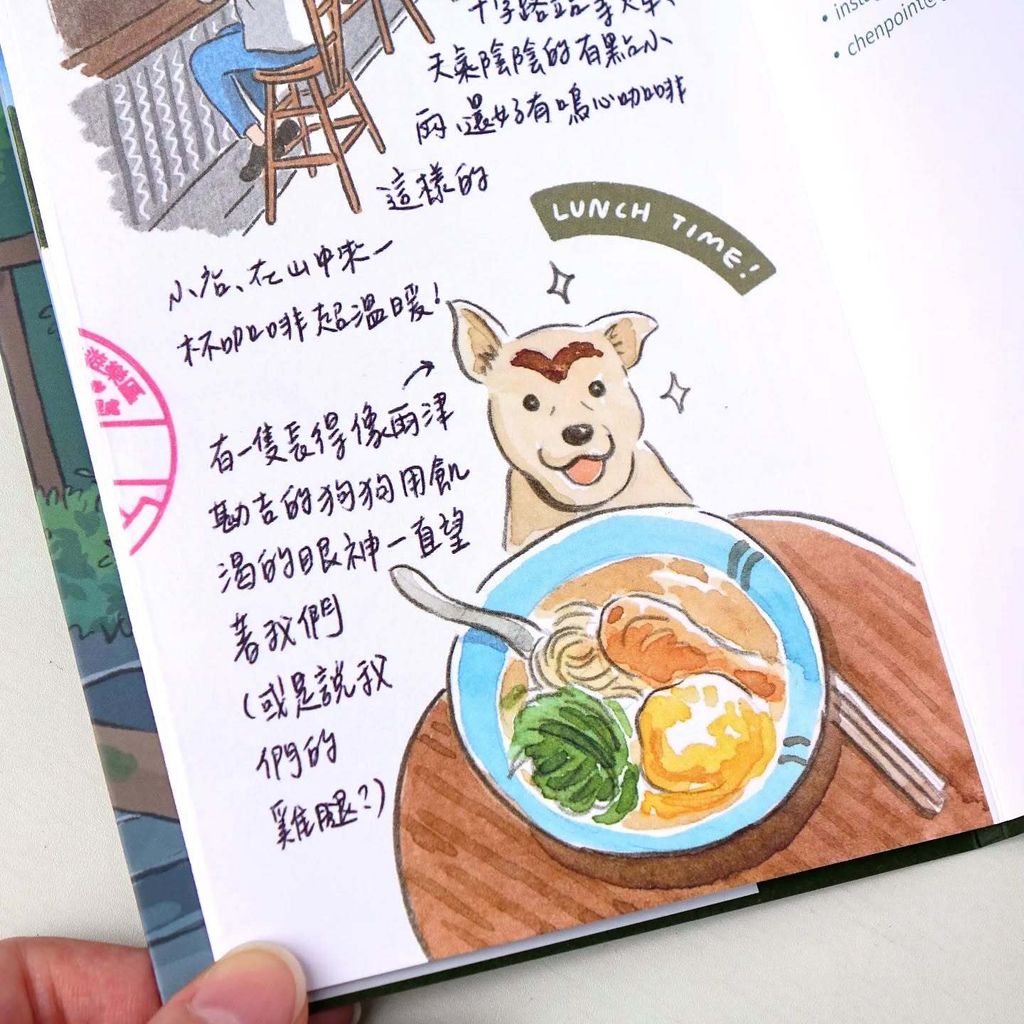 十字路站等火車、
天氣陰陰的有點小
雨、還好有鳴心咖啡
這樣的
小店、在山中來一
杯咖啡超溫暖！
LUNCH TIME!
有一隻長得像兩津
勘吉的狗狗用飢
渴的眼神一直望
著我們
（或是說我
們的
雞腿？）
遊樂區